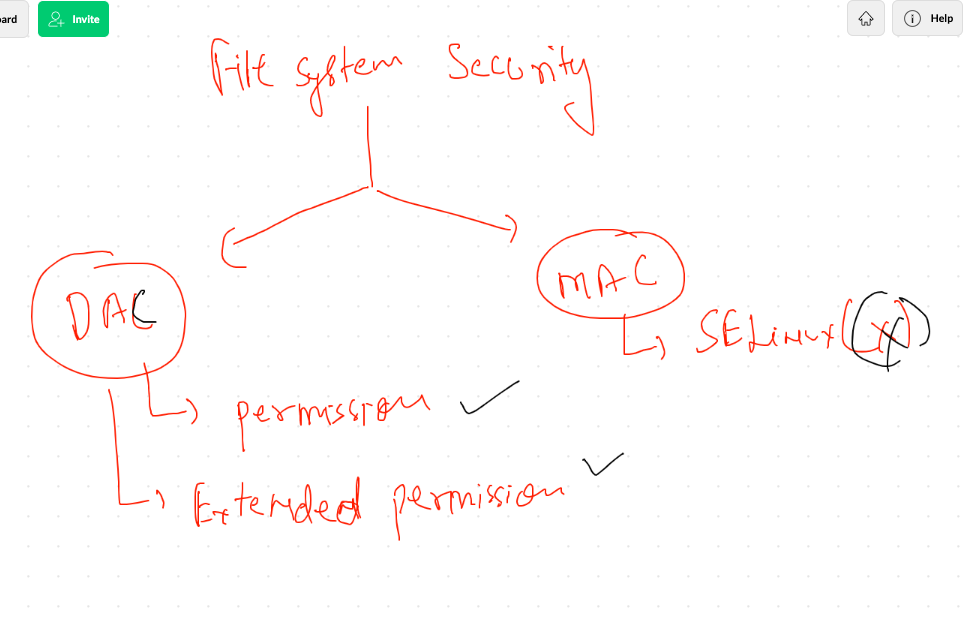 ard Invite Help
File System Security
DAC
MAC
SELinux (x)
permission
Extended permission